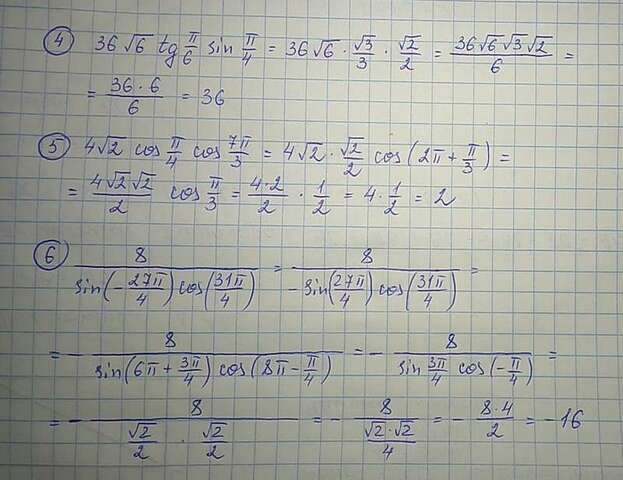 ④ 36√6 tg π/6 sin π/4 = 36√6 · √3/3 · √2/2 = 36√6√3√2/6 =
= 36·6/6 = 36
⑤ 4√2 cos π/4 cos 7π/3 = 4√2 · √2/2 cos(2π + π/3) =
= 4√2√2/2 cos π/3 = 4·2/2 · 1/2 = 4 · 1/2 = 2
⑥ 8/(sin(-27π/4) cos(31π/4)) = 8/(-sin(27π/4) cos(31π/4)) =
= - 8/(sin(6π + 3π/4) cos(8π - π/4)) = - 8/(sin 3π/4 cos(-π/4)) =
= - 8/(√2/2 · √2/2) = - 8/(√2·√2/4) = - 8·4/2 = -16